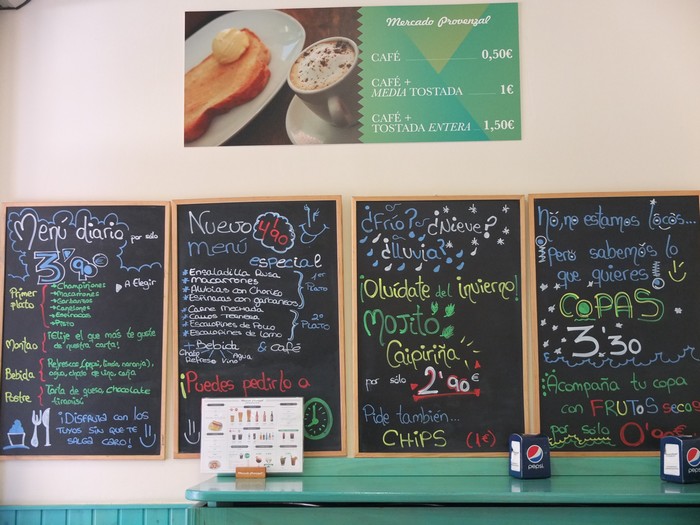 Mercado Provenzal
CAFÉ 0,50€
CAFÉ +
MEDIA TOSTADA 1€
CAFÉ +
TOSTADA ENTERA 1,50€
Menú diario por solo
3'90€
Primer plato
→Champiñones
→Macarrones
→Garbanzos
→Canelones
→Espinacas
→Pisto
▶ A Elegir
Montao
¡Elije el que más te guste
de nuestra carta!
Bebida
Refresco (pepsi, limón, naranja),
agua, chato de vino, caña
Postre
Tarta de queso, chocolate
tiramisú
¡Disfruta con los
tuyos sin que te
salga caro!
Nuevo 4'90
menú
especial
*Ensaladilla Rusa
*Macarrones
*Alubias con Chorizo
*Espinacas con garbanzos
1er Plato
*Carne mechada
*Escalopines de Pollo
*Escalopines de Lomo
2º Plato
+Bebida & café
Chato Agua
Refresco Vino
¡Puedes pedirlo a
¿Frío? ó ¿Nieve?
¿lluvia?
¡Olvídate del invierno!
Mojito
ó
Caipiriña
por sólo 2'90€
Pide también...
CHIPS (1€)
No, no estamos locos...
Pero sabemos lo
que quieres!
COPAS
3'30
¡Acompaña tu copa
con FRUTOS secos
por solo 0'90
pepsi
pepsi